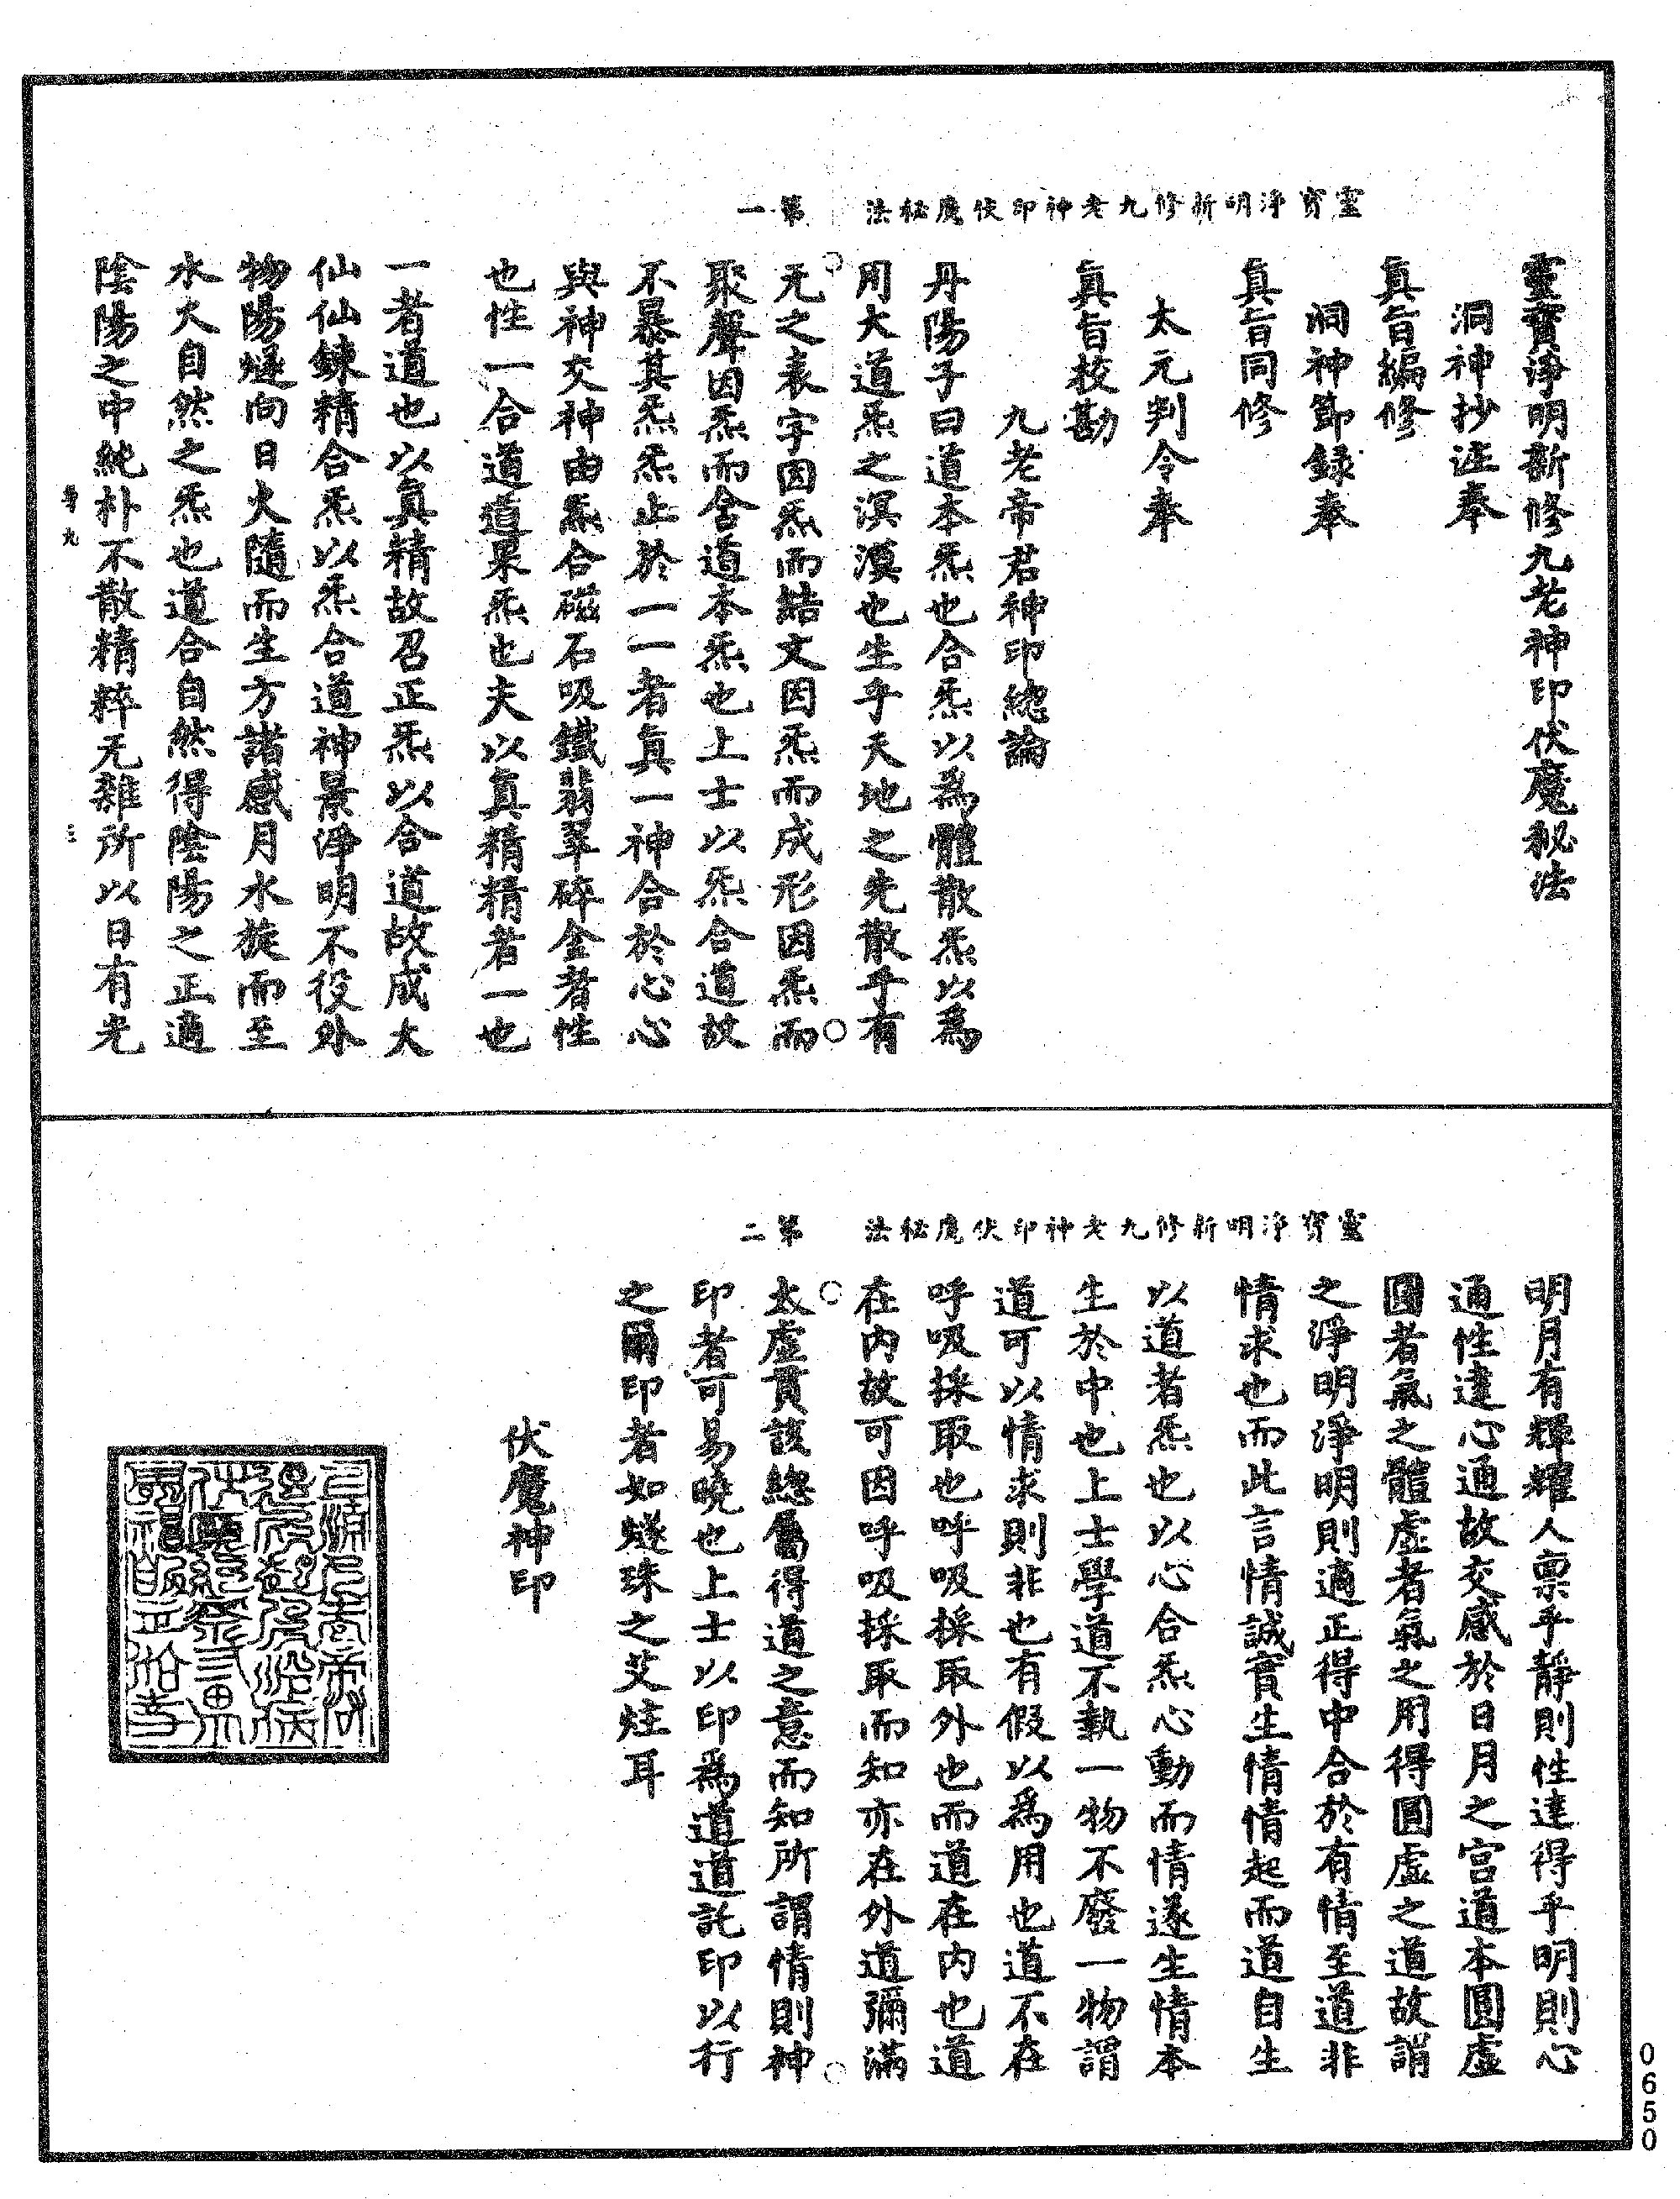 靈寶淨明新修九老神印伏魔秘法　第一
靈寶淨明新修九老神印伏魔秘法
洞神抄注奉
真旨編修
洞神節録奉
真旨同修
太元判令奉
真旨校勘
九老帝君神印總論
丹陽子曰道本炁也合炁以為體散炁以為
用大道炁之溟漠也生乎天地之先散乎有
无之表字因炁而結文因炁而成形因炁而
聚聲因炁而舍道本炁也上士以炁合道故
不暴其炁炁止於一一者真一神合於心心
與神交神由炁合磁石吸鐵翡翠碎金者性
也性一合道道果炁也夫以真精精若一也
一者道也以真精故召正炁以合道故成大
仙仙錬精合炁以炁合道神景淨明不役外
物陽燧向日火隨而生方諸感月水旋而至
水火自然之炁也道合自然得陰陽之正適
陰陽之中純朴不散精粹无雜所以日有光
三
靈寶淨明新修九老神印伏魔秘法　第二
明月有輝耀人禀乎靜則性達得乎明則心
通性達心通故交感於日月之宮道本圓虛
圓者氣之體虛者氣之用得圓虛之道故謂
之淨明淨明則適正得中合於有情至道非
情求也而此言情誠實生情情起而道自生
以道者炁也以心合炁心動而情遂生情本
生於中也上士學道不執一物不廢一物謂
道可以情求則非也有假以為用也道不在
呼吸採取也呼吸採取外也而道在内也道
在内故可因呼吸採取而知亦在外道彌滿
太虛貫該總屬得道之意而知所謂情則神
印者可易曉也上士以印為道道託印以行
之爾印者如燧珠之艾炷耳
伏魔神印
0650